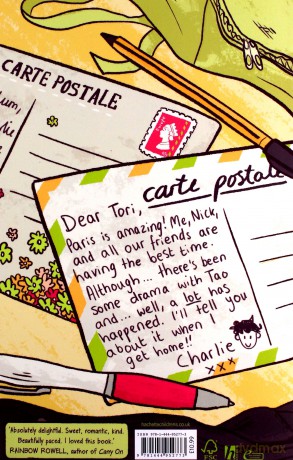 CARTE POSTALE
carte postale
Dear Tori,
Paris is amazing! Me, Nick,
and all our friends are
having the best time.
Although... there's been
some drama with Tao
and... well, a lot has
happened. I'll tell you
about it when I
get home!!
Charlie
xxx
'Absolutely delightful. Sweet, romantic, kind.
Beautifully paced. I loved this book.'
RAINBOW ROWELL, author of Carry On
£10.99
FSC